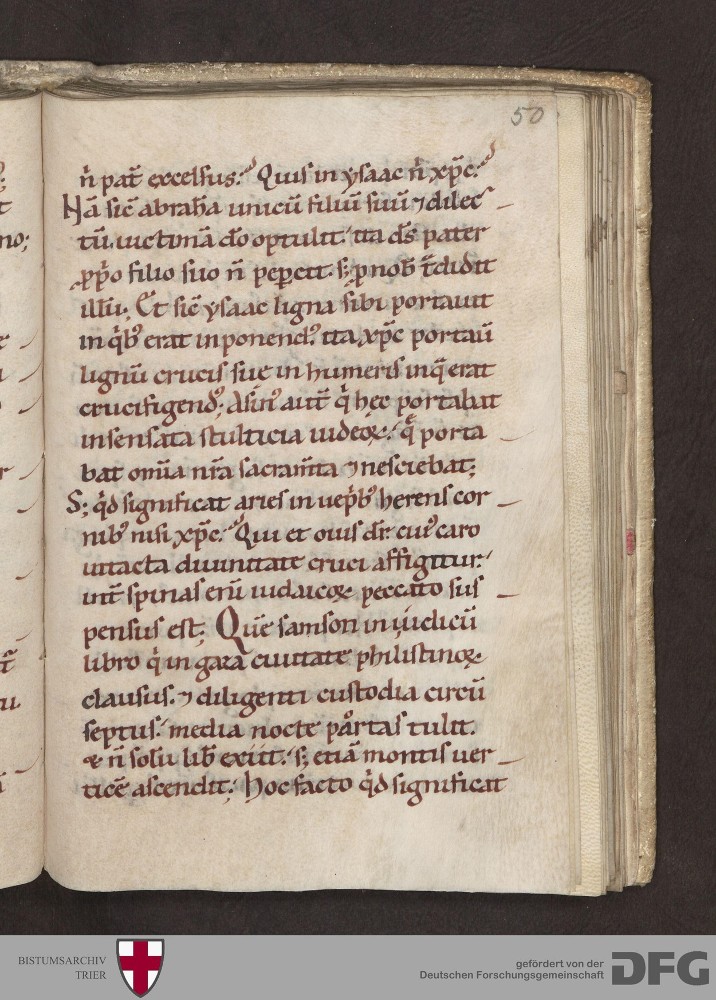 50
n̄ pat̄ excelsus. Quis in ysaac n̄ xp̄c.
Nā sic̄ abrah̄a unicū filiū suū ⁊ dilec
tū. uictimā do optulit. ita ds̄ pater
ꝓpͥo filio suo n̄ peꝑcit. s; ꝓ nob̄ t̄didit
illū. Et sic̄ ysaac ligna sibi portauit
in qͥbꝰ erat inponendꝰ. ita xp̄c portaū
lignū crucis sue in humeris in q̄ erat
crucifigendꝰ; Asinꝰ aut̄ qͥ hec portabat
insensata stulticia iudeoꝝ. q̄ porta
bat om̄ia nr̄a sacram̄ta ⁊ nesciebat;
S; qͥd significat aries in uep̄bꝰ herens cor
nibꝰ nisi xp̄c. Qui et ouis dr̄. cuiꝰ caro
intacta diuinitate cruci affigitur.
int̄ spinas eni̅ iudaicoꝝ peccato sus
pensus est; Que̅ samson in iudicū
libro qͥ in gaza ciuitate philistinoꝝ
clausus. ⁊ diligenti custodia circū
septus. media nocte portas tulit.
& n̄ solū lib̄ exiit. s; etiā montis uer
ticē ascendit. Hoc facto qͥd significat
no;
BISTUMSARCHIV
TRIER
gefördert von der
Deutschen Forschungsgemeinschaft
DFG